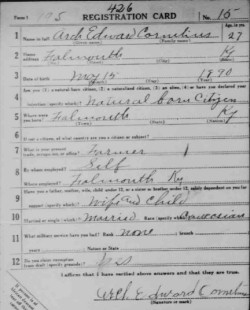 426
Form 1 195 REGISTRATION CARD No. 15
1 Name in full Arch Edward Cornelius 27
(Given name) (Family name)
2 Home address Falmouth Ky
3 Date of birth May 15 1890
(Month) (Day) (Year)
4 Are you (1) a natural-born citizen, (2) a naturalized citizen, (3) an alien, (4) or have you declared your
intention (specify which)? Natural born Citizen
5 Where were you born? Falmouth Ky
(Town) (State)
6 If not a citizen, of what country are you a citizen or subject?
7 What is your present trade, occupation, or office? Farmer
8 By whom employed? Self
Where employed? Falmouth Ky
9 Have you a father, mother, wife, child under 12, or a sister or brother under 12, solely dependent on you for
support (specify which)? Wife and Child
10 Married or single (which)? Married Race (specify which)? Caucasian
11 What military service have you had? Rank none ; branch
years ; Nation or State
12 Do you claim exemption from draft (specify grounds)? Yes
I affirm that I have verified above answers and that they are true.
Arch Edward Cornelius
(Signature or mark)